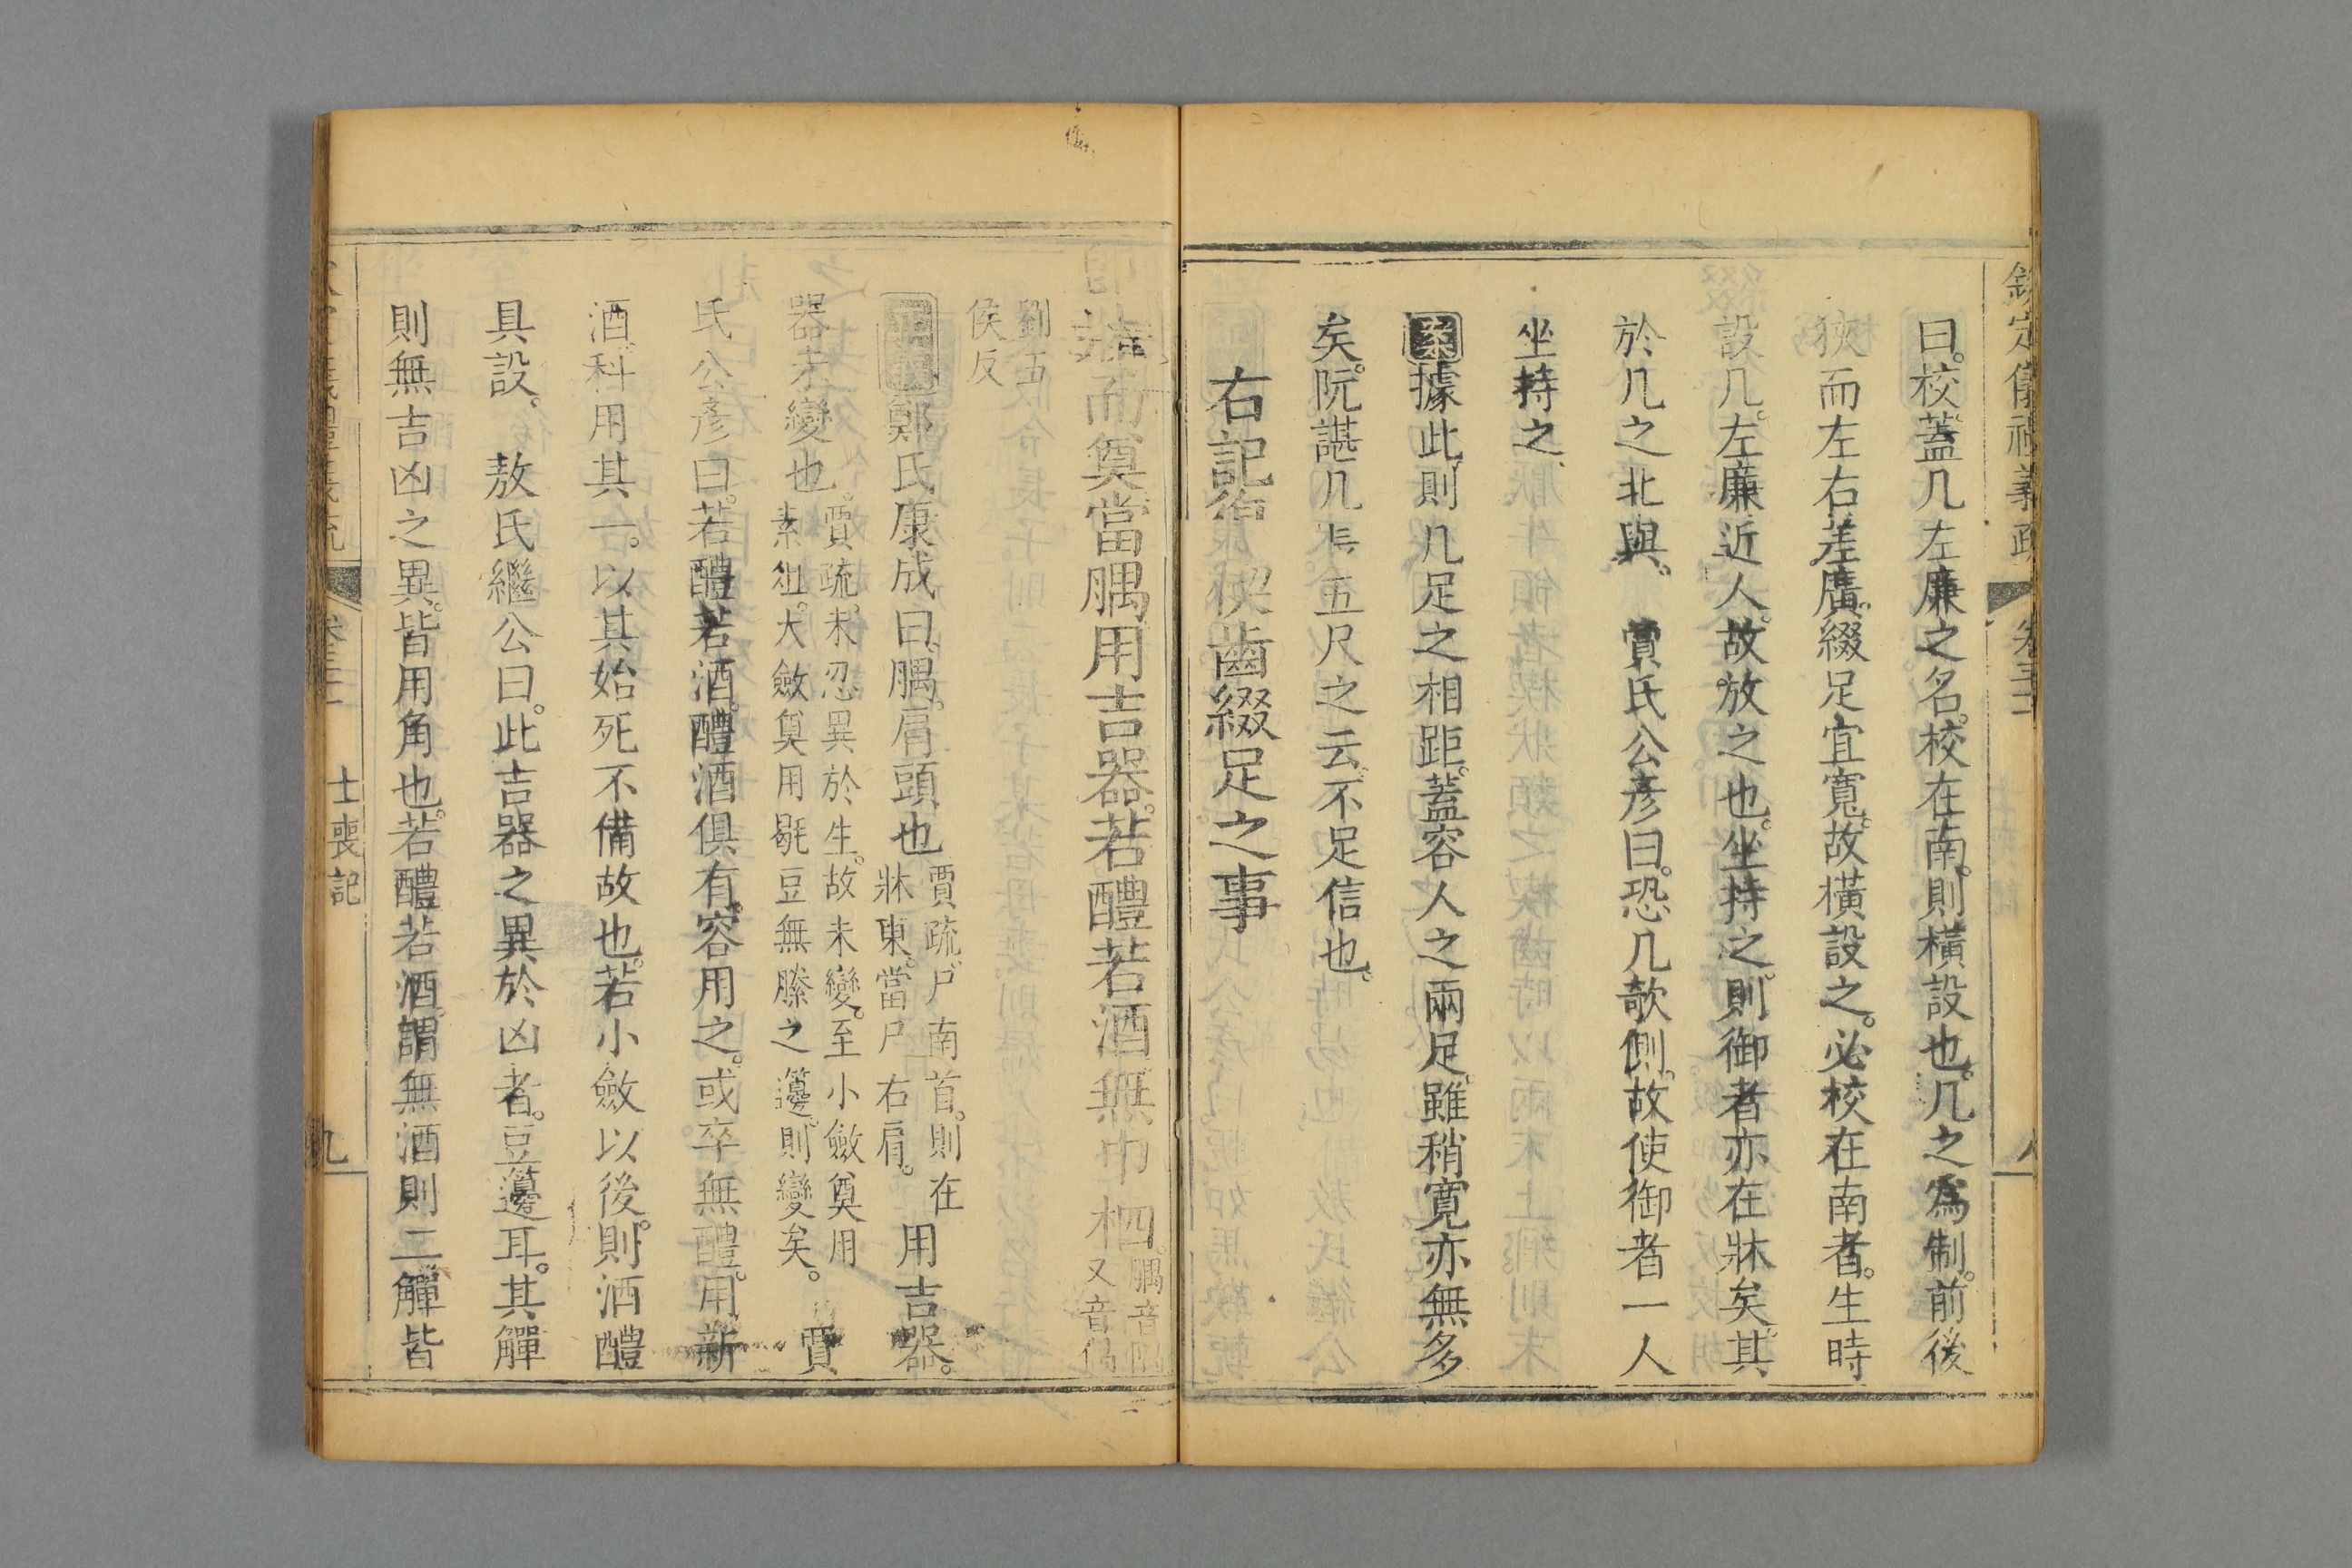 欽定儀禮義疏 卷三十一 八
曰。校蓋几左廉之名。校在南。則橫設也。几之爲制。前後
狹而左右差廣。綴足宜寬。故橫設之。必校在南者。生時
設几。左廉近人。故放之也。坐持之。則御者亦在牀矣。其
於几之北與。 賈氏公彥曰。恐几欹側。故使御者一人
坐持之
案據此則几足之相距。蓋容人之兩足。雖稍寬亦無多
矣。阮諶几長五尺之云。不足信也。
右記 楔齒綴足之事
而奠當腢用吉器。若醴若酒。無巾柶。腢音 又音偶
劉五
侯反
鄭氏康成曰。腢。肩頭也 賈疏。尸南首。則在
牀東。當尸右肩。 用吉器。
器未變也。賈疏。未忍異於生。故未變。至小斂奠用
素俎。大斂奠用毼豆無縢之籩。則變矣。 賈
氏公彥曰。若醴若酒。醴酒俱有。容用之。或卒無醴。用新
酒。科用其一。以其始死不備故也。若小斂以後。則酒醴
具設。 敖氏繼公曰。此吉器之異於凶者。豆籩耳。其觶
則無吉凶之異。皆用角也。若醴若酒。謂無酒則二觶皆
士喪記 九